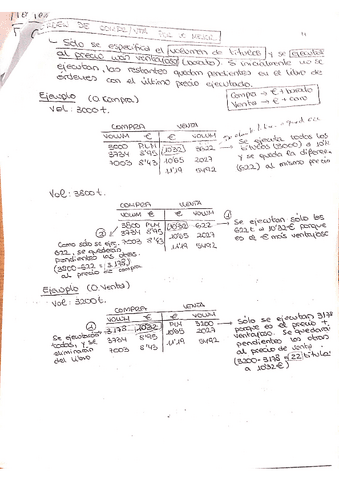 ORDEN DE COMPRA/VTA POR LO MEJOR
↳ Sólo se especifica el volumen de títulos y se ejecutan
al precio más ventajoso (barato). Si inicialmente no se
ejecutan, las restantes quedan pendientes en el libro de
órdenes con el último precio ejecutado.
Compra → € + barato
Venta → € + caro
Ejemplo (O. Compra)
- Vol: 3000 t.
COMPRA VENTA
VOLUM € € VOLUM
3000 PLM 10'32 3622
3734 8'45 10'65 2027
7003 8'43 11'19 5492
Se ejecuta todos los
títulos (3000) a 10'32
y se queda la diferencia
(622) al mismo precio
- Vol: 3800 t.
COMPRA VENTA
VOLUM € € VOLUM
3800 PLM 10'32 622
3734 8'45 10'65 2027
7003 8'43 11'19 5492
① Se ejecutan sólo los
622 t a 10'32€ porque
es el € más ventajoso
② Como sólo se ejec.
622, se quedarán
pendientes las otras
(3800-622 = 3.178)
al precio de compra
Ejemplo (O. Venta)
- Vol: 3200 t.
COMPRA VENTA
VOLUM € € VOLUM
3.178 10'32 PLM 3200
3734 8'45 10'65 2027
7003 8'43 11'19 5492
① Se ejecutan
todos, y se
eliminarán
del Libro
→ Sólo se ejecutan 3178
porque es el precio +
ventajoso. Se quedarán
pendientes los otros
al precio de venta.
(3200 - 3178 = 22 títulos
a 10'32€)